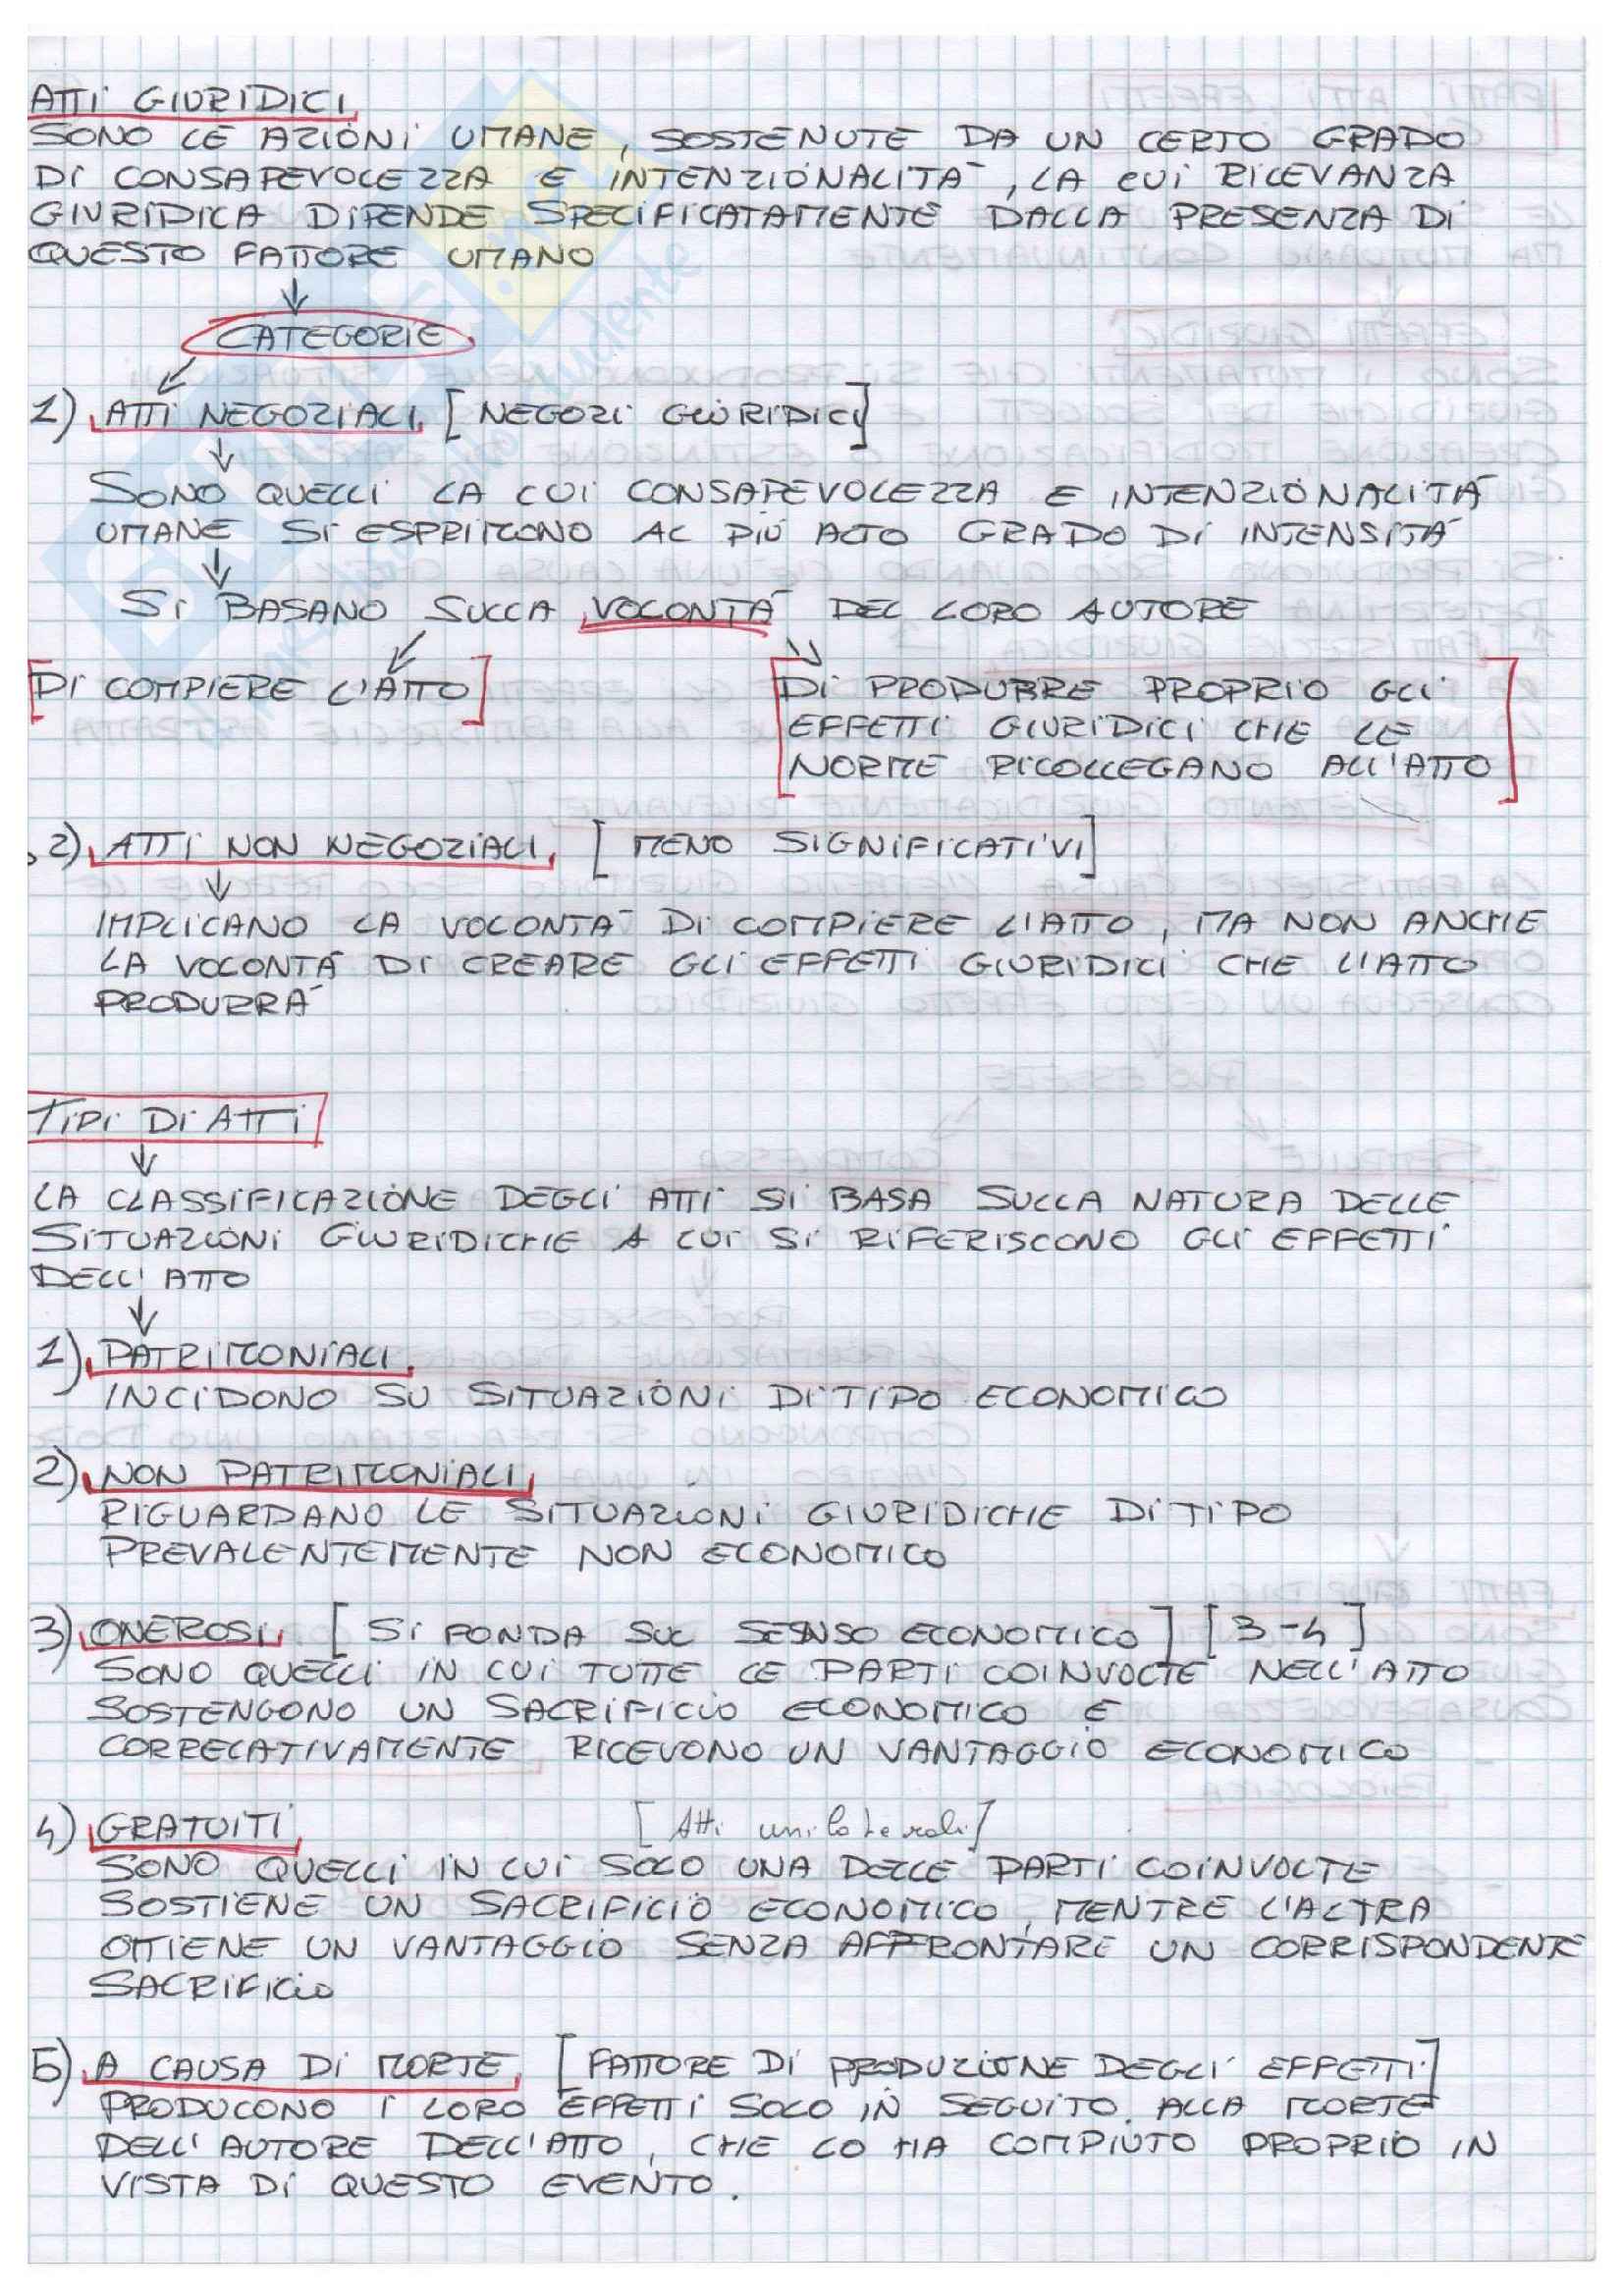 ATTI GIURIDICI
SONO LE AZIONI UMANE, SOSTENUTE DA UN CERTO GRADO
DI CONSAPEVOLEZZA E INTENZIONALITÀ, LA CUI RILEVANZA
GIURIDICA DIPENDE SPECIFICATAMENTE DALLA PRESENZA DI
QUESTO FATTORE UMANO
↓
CATEGORIE
1) ATTI NEGOZIALI [NEGOZI GIURIDICI]
↓
SONO QUELLI LA CUI CONSAPEVOLEZZA E INTENZIONALITÀ
UMANE SI ESPRIMONO AL PIÙ ALTO GRADO DI INTENSITÀ
↓
SI BASANO SULLA VOLONTÀ DEL LORO AUTORE
[DI COMPIERE L'ATTO]
[DI PRODURRE PROPRIO GLI
EFFETTI GIURIDICI CHE LE
NORME RICOLLEGANO ALL'ATTO]
2) ATTI NON NEGOZIALI [MENO SIGNIFICATIVI]
↓
IMPLICANO LA VOLONTÀ DI COMPIERE L'ATTO, MA NON ANCHE
LA VOLONTÀ DI CREARE GLI EFFETTI GIURIDICI CHE L'ATTO
PRODURRÀ
TIPI DI ATTI
↓
LA CLASSIFICAZIONE DEGLI ATTI SI BASA SULLA NATURA DELLE
SITUAZIONI GIURIDICHE A CUI SI RIFERISCONO GLI EFFETTI
DELL'ATTO
↓
1) PATRIMONIALI
INCIDONO SU SITUAZIONI DI TIPO ECONOMICO
2) NON PATRIMONIALI
RIGUARDANO LE SITUAZIONI GIURIDICHE DI TIPO
PREVALENTEMENTE NON ECONOMICO
3) ONEROSI [SI FONDA SUL SESNSO ECONOMICO] [3-4]
SONO QUELLI IN CUI TUTTE LE PARTI COINVOLTE NELL'ATTO
SOSTENGONO UN SACRIFICIO ECONOMICO E
CORRELATIVAMENTE RICEVONO UN VANTAGGIO ECONOMICO
4) GRATUITI [Atti unilaterali]
SONO QUELLI IN CUI SOLO UNA DELLE PARTI COINVOLTE
SOSTIENE UN SACRIFICIO ECONOMICO, MENTRE L'ALTRA
OTTIENE UN VANTAGGIO SENZA AFFRONTARE UN CORRISPONDENTE
SACRIFICIO
5) A CAUSA DI MORTE [FATTORE DI PRODUZIONE DEGLI EFFETTI]
PRODUCONO I LORO EFFETTI SOLO IN SEGUITO ALLA MORTE
DELL'AUTORE DELL'ATTO, CHE LO HA COMPIUTO PROPRIO IN
VISTA DI QUESTO EVENTO.